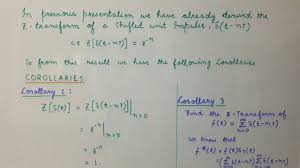 In previous presentation we have already derived the
Z-transform of a Shifted unit Impulse, δ(t-nT)
i.e Z[δ(t-nT)] = z⁻ⁿ
So from this result we have the following Corollaries
COROLLARIES
Corollary 1 :
Z[δ(t)] = Z[δ(t-nT)]|n=0
= z⁻ⁿ|n=0
= z⁰
= 1.
Corollary 3
Find the Z-Transform of
f(t) = Σ δ(t-nT)
n=0
We know that
f*(t) = f(t)δT(t)
= Σ δ(t-nT)
n=0